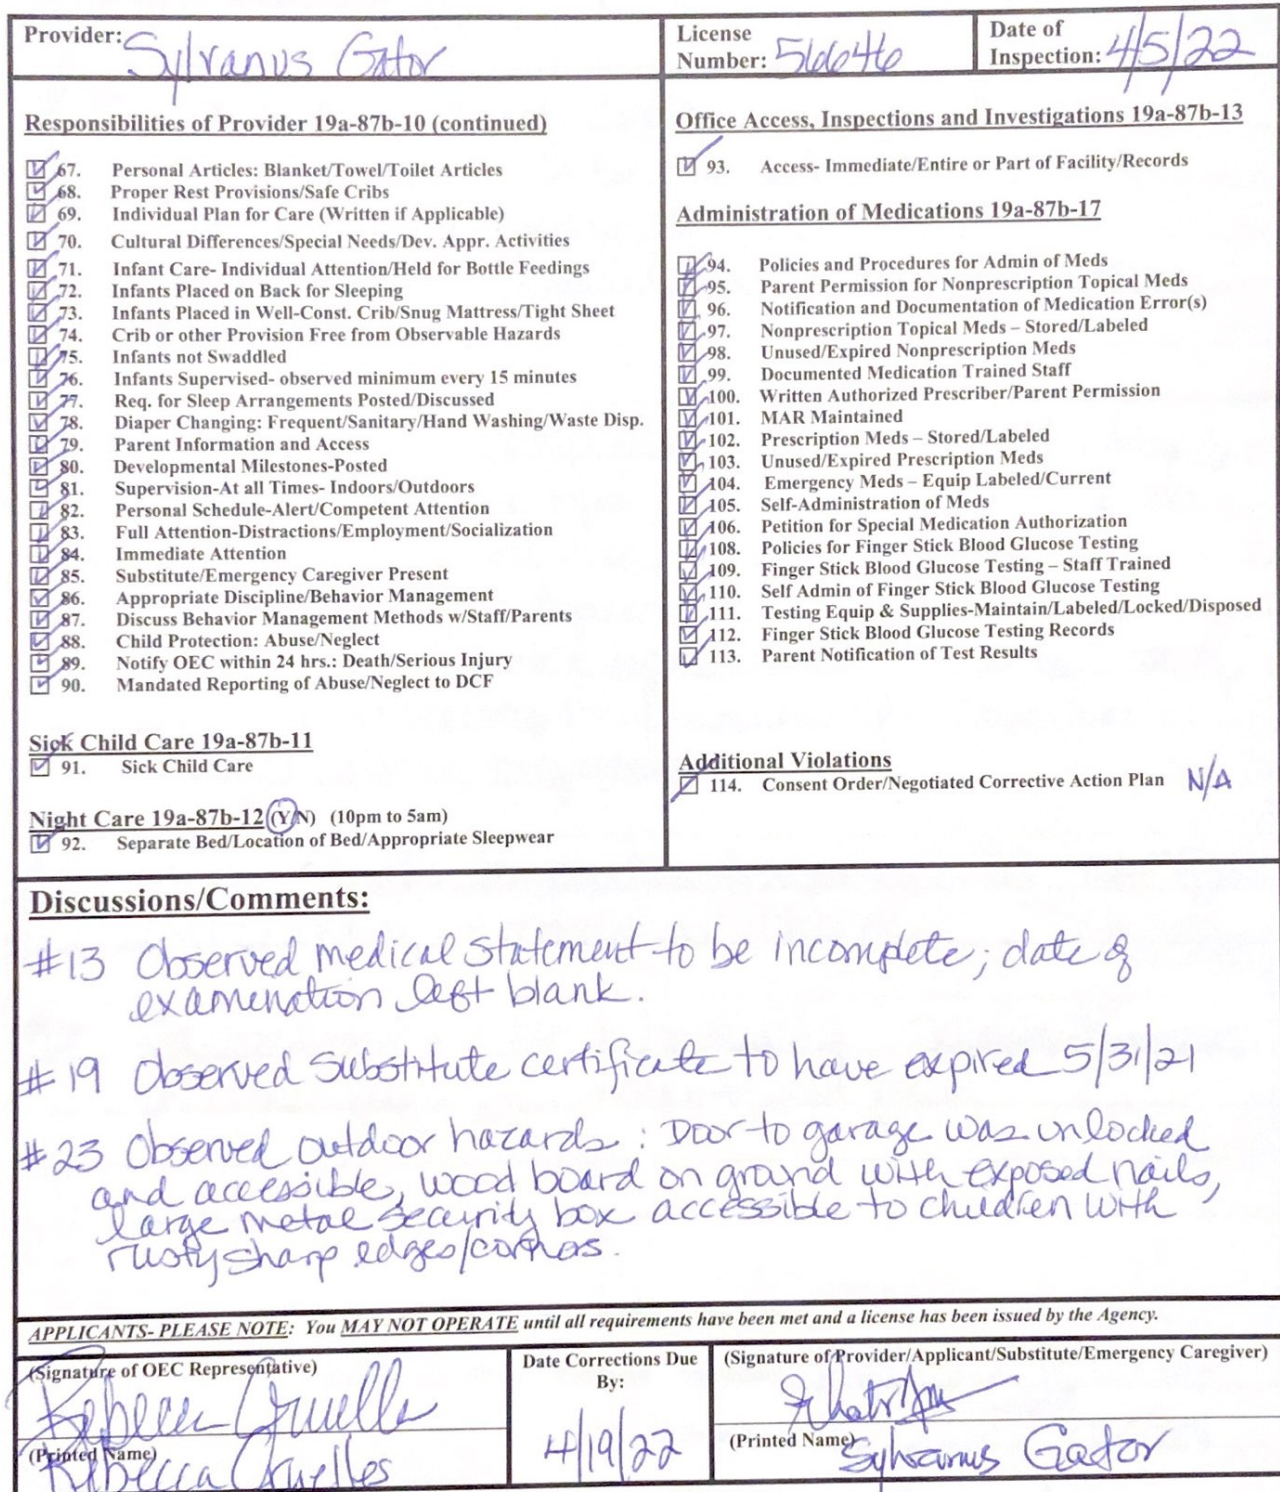 Provider: Sylvanus Gator
License Number: 56646
Date of Inspection: 4/5/22
Responsibilities of Provider 19a-87b-10 (continued)
67. Personal Articles: Blanket/Towel/Toilet Articles
68. Proper Rest Provisions/Safe Cribs
69. Individual Plan for Care (Written if Applicable)
70. Cultural Differences/Special Needs/Dev. Appr. Activities
71. Infant Care- Individual Attention/Held for Bottle Feedings
72. Infants Placed on Back for Sleeping
73. Infants Placed in Well-Const. Crib/Snug Mattress/Tight Sheet
74. Crib or other Provision Free from Observable Hazards
75. Infants not Swaddled
76. Infants Supervised- observed minimum every 15 minutes
77. Req. for Sleep Arrangements Posted/Discussed
78. Diaper Changing: Frequent/Sanitary/Hand Washing/Waste Disp.
79. Parent Information and Access
80. Developmental Milestones-Posted
81. Supervision-At all Times- Indoors/Outdoors
82. Personal Schedule-Alert/Competent Attention
83. Full Attention-Distractions/Employment/Socialization
84. Immediate Attention
85. Substitute/Emergency Caregiver Present
86. Appropriate Discipline/Behavior Management
87. Discuss Behavior Management Methods w/Staff/Parents
88. Child Protection: Abuse/Neglect
89. Notify OEC within 24 hrs.: Death/Serious Injury
90. Mandated Reporting of Abuse/Neglect to DCF
Sick Child Care 19a-87b-11
91. Sick Child Care
Night Care 19a-87b-12 (Y/N) (10pm to 5am)
92. Separate Bed/Location of Bed/Appropriate Sleepwear
Office Access, Inspections and Investigations 19a-87b-13
93. Access- Immediate/Entire or Part of Facility/Records
Administration of Medications 19a-87b-17
94. Policies and Procedures for Admin of Meds
95. Parent Permission for Nonprescription Topical Meds
96. Notification and Documentation of Medication Error(s)
97. Nonprescription Topical Meds – Stored/Labeled
98. Unused/Expired Nonprescription Meds
99. Documented Medication Trained Staff
100. Written Authorized Prescriber/Parent Permission
101. MAR Maintained
102. Prescription Meds – Stored/Labeled
103. Unused/Expired Prescription Meds
104. Emergency Meds – Equip Labeled/Current
105. Self-Administration of Meds
106. Petition for Special Medication Authorization
108. Policies for Finger Stick Blood Glucose Testing
109. Finger Stick Blood Glucose Testing – Staff Trained
110. Self Admin of Finger Stick Blood Glucose Testing
111. Testing Equip & Supplies-Maintain/Labeled/Locked/Disposed
112. Finger Stick Blood Glucose Testing Records
113. Parent Notification of Test Results
Additional Violations
114. Consent Order/Negotiated Corrective Action Plan N/A
Discussions/Comments:
#13 Observed medical statement to be incomplete; date of
examenation left blank.
#19 Observed substitute certificate to have expired 5/31/21
#23 Observed outdoor hazards: Door to garage was unlocked
and accessible, wood board on ground with exposed nails,
large metal security box accessible to children with
rusty sharp edges/corners.
APPLICANTS- PLEASE NOTE: You MAY NOT OPERATE until all requirements have been met and a license has been issued by the Agency.
(Signature of OEC Representative)
Rebecca
(Printed Name)
Rebecca
Date Corrections Due
By:
4/19/22
(Signature of Provider/Applicant/Substitute/Emergency Caregiver)
(Printed Name) Sylvanus Gator